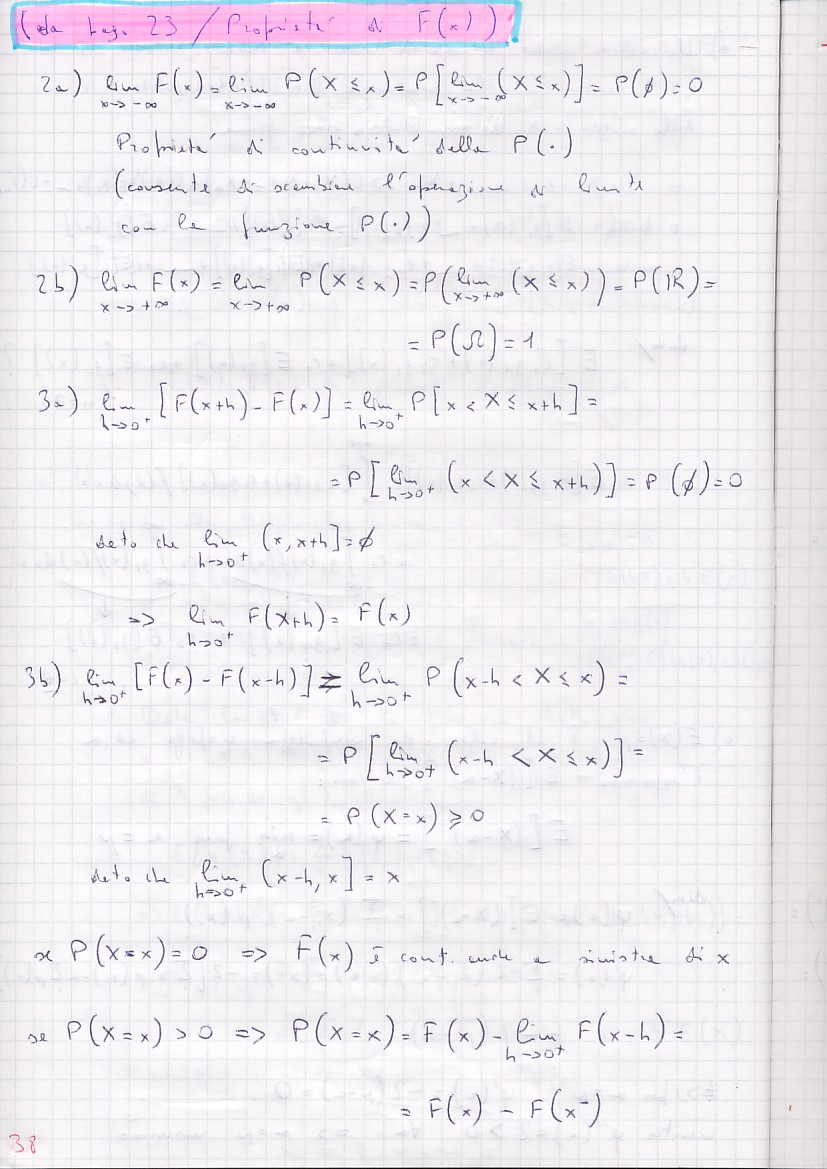 (da pag. 23 / Proprietà di F(x))
2a) lim F(x) = lim P(X ≤ x) = P[lim (X ≤ x)] = P(∅) = 0
x→-∞ x→-∞ x→-∞
Proprietà di continuità della P(·)
(consente di scambiare l'operazione di limite
con la funzione P(·))
2b) lim F(x) = lim P(X ≤ x) = P(lim (X ≤ x)) = P(ℝ) =
x→+∞ x→+∞ x→+∞
= P(Ω) = 1
3a) lim [F(x+h) - F(x)] = lim P[x < X ≤ x+h] =
h→0⁺ h→0⁺
= P[lim (x < X ≤ x+h)] = P(∅) = 0
h→0⁺
dato che lim (x, x+h] = ∅
h→0⁺
=> lim F(x+h) = F(x)
h→0⁺
3b) lim [F(x) - F(x-h)] = lim P(x-h < X ≤ x) =
h→0⁺ h→0⁺
= P[lim (x-h < X ≤ x)] =
h→0⁺
= P(X = x) ⩾ 0
dato che lim (x-h, x] = x
h→0⁺
se P(X = x) = 0 => F(x) è cont. anche a sinistra di x
se P(X = x) > 0 => P(X = x) = F(x) - lim F(x-h) =
h→0⁺
= F(x) - F(x⁻)
38